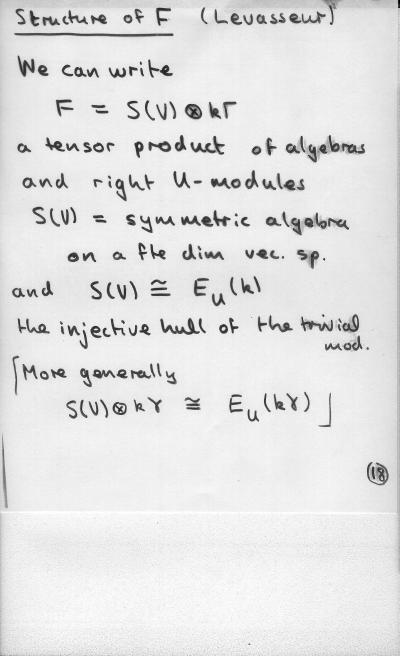 Structure of F (Levasseur)
We can write
F = S(V) ⊗ kΓ
a tensor product of algebras
and right U-modules
S(V) = symmetric algebra
on a fte dim vec. sp.
and S(V) ≅ E_U(k)
the injective hull of the trivial
mod.
⌈More generally
S(V) ⊗ kγ ≅ E_U(kγ)⌋
18